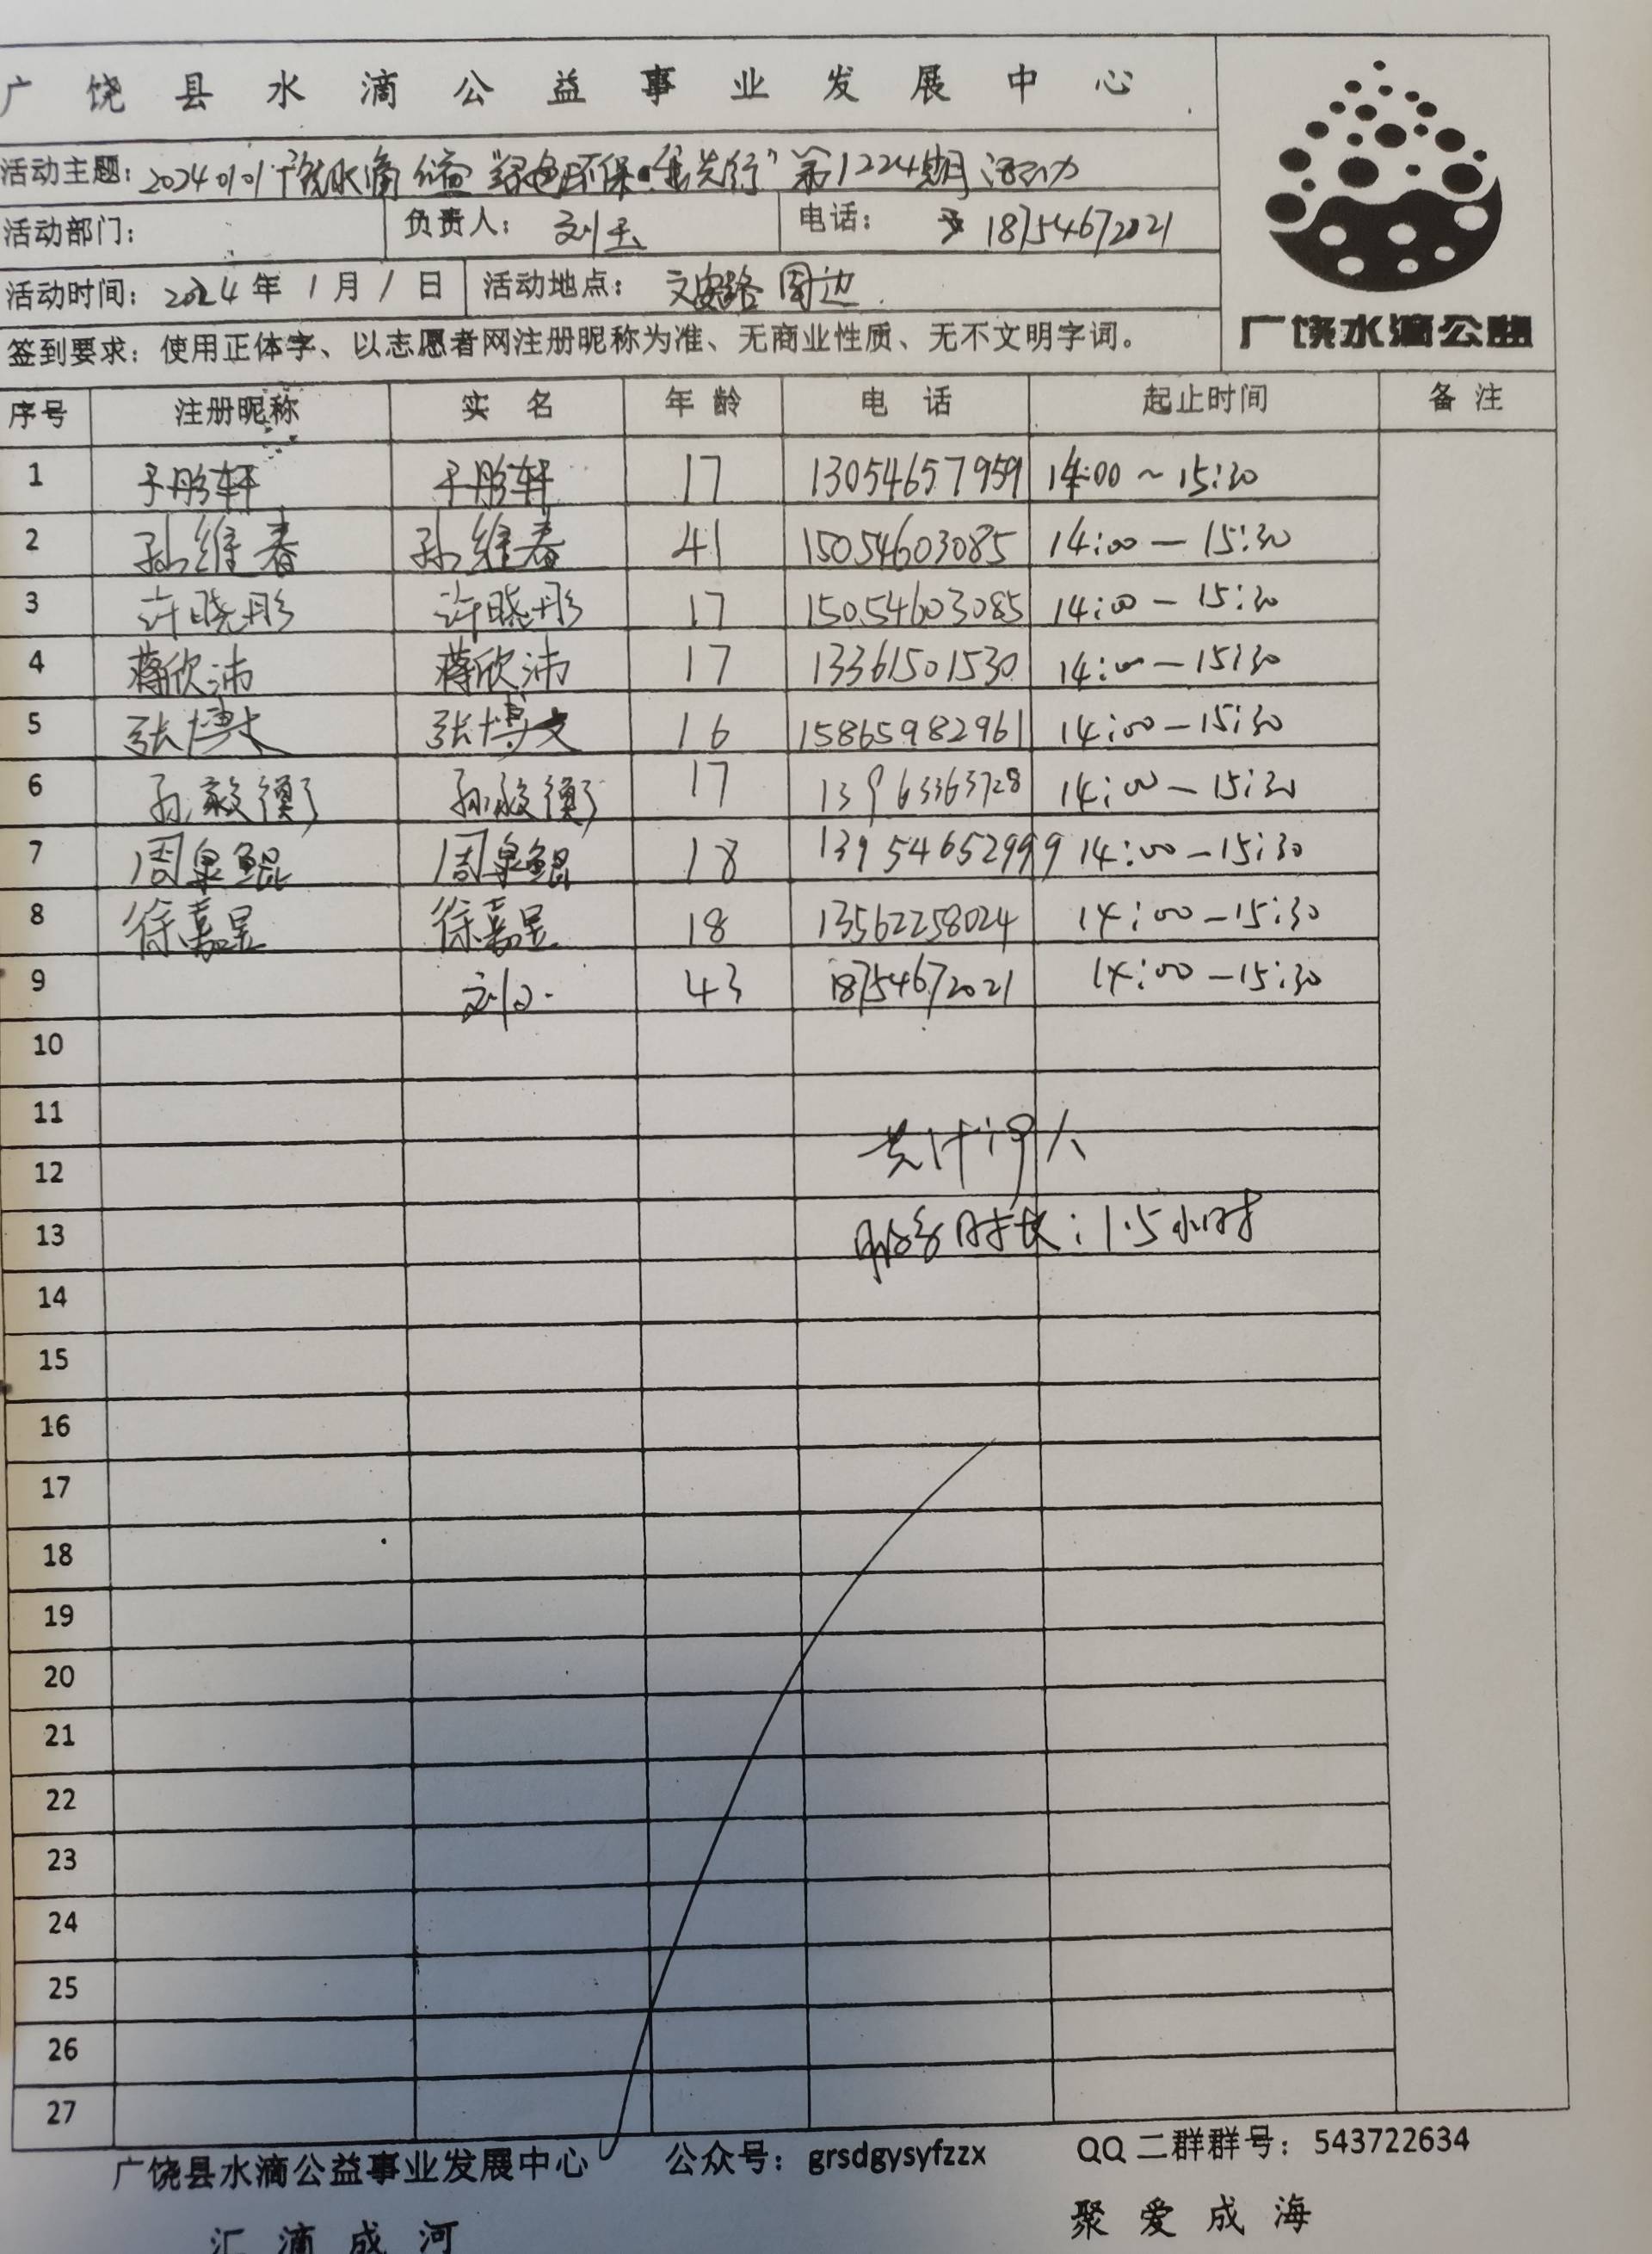 广饶县水滴公益事业发展中心
活动主题：20240101广饶水滴公益"绿色环保 先行"第1224期活动
活动部门： 负责人：刘玉 电话：18754672021
活动时间：2024年1月1日 活动地点：文安路周边
签到要求：使用正体字、以志愿者网注册昵称为准、无商业性质、无不文明字词。
广饶水滴公益
序号 注册昵称 实名 年龄 电话 起止时间 备注
1 于彤轩 于彤轩 17 13054657959 14:00～15:30
2 孙维春 孙维春 41 15054603085 14:00—15:30
3 许晓彤 许晓彤 17 15054603085 14:00—15:30
4 蒋欣沛 蒋欣沛 17 13361501530 14:00—15:30
5 张博文 张博文 16 15865982961 14:00—15:30
6 孙毅衡 孙毅衡 17 13963363728 14:00—15:30
7 周泉鲲 周泉鲲 18 13954652999 14:00—15:30
8 徐嘉昱 徐嘉昱 18 13562258024 14:00—15:30
9 刘 43 18754672021 14:00—15:30
10
11
共计:9人
12
13 服务时长：1.5小时
14
15
16
17
18
19
20
21
22
23
24
25
26
27
广饶县水滴公益事业发展中心 公众号：grsdgysyfzzx QQ二群群号：543722634
汇滴成河 聚爱成海